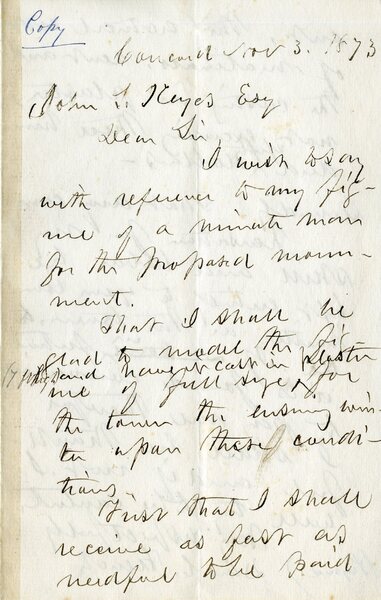 Copy
Concord Nov 3. 1873
John S. Keyes Esq
Dear Sir
I wish to say
with reference to my fig-
ure of a minute man
for the proposed monu-
ment.
That I shall be
glad to model the fig-
and have it cast in plaster
ure of full size, for
the town the ensuing win-
ter upon these condi-
tions
First that I shall
receive as fast as
needful to be paid